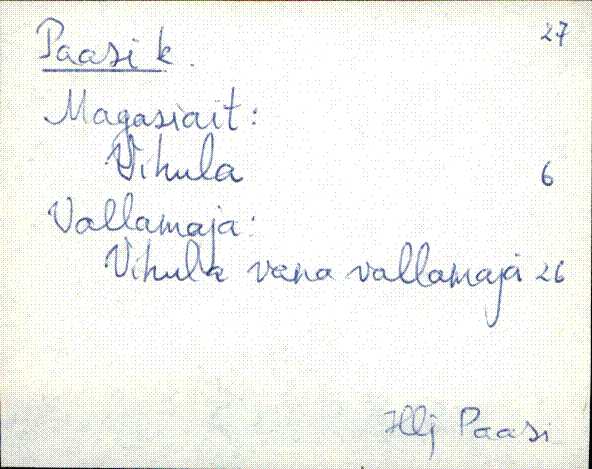 Paasi k. 27
Magasiait:
Vihula 6
Vallamaja:
Vihula vana vallamaja 26
Hlj Paasi